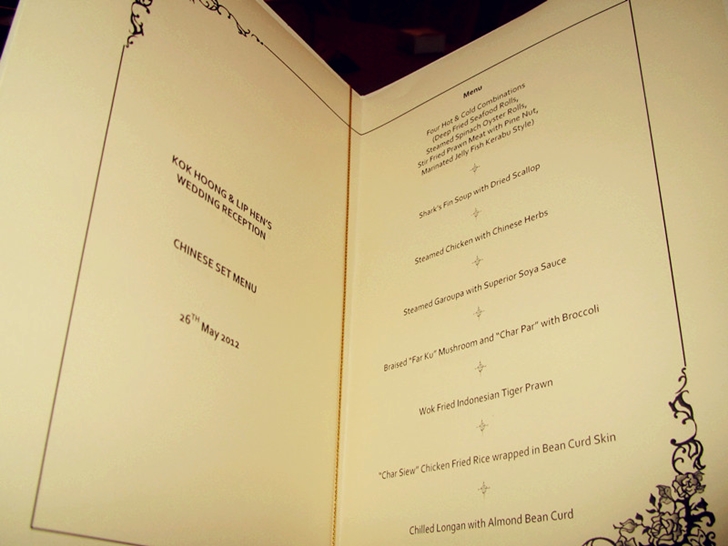 KOK HOONG & LIP HEN'S
WEDDING RECEPTION
CHINESE SET MENU
26TH May 2012
Menu
Four Hot & Cold Combinations
(Deep Fried Seafood Rolls,
Steamed Spinach Oyster Rolls,
Stir Fried Prawn Meat with Pine Nut,
Marinated Jelly Fish Kerabu Style)
Shark's Fin Soup with Dried Scallop
Steamed Chicken with Chinese Herbs
Steamed Garoupa with Superior Soya Sauce
Braised "Far Ku" Mushroom and "Char Par" with Broccoli
Wok Fried Indonesian Tiger Prawn
"Char Siew" Chicken Fried Rice wrapped in Bean Curd Skin
Chilled Longan with Almond Bean Curd